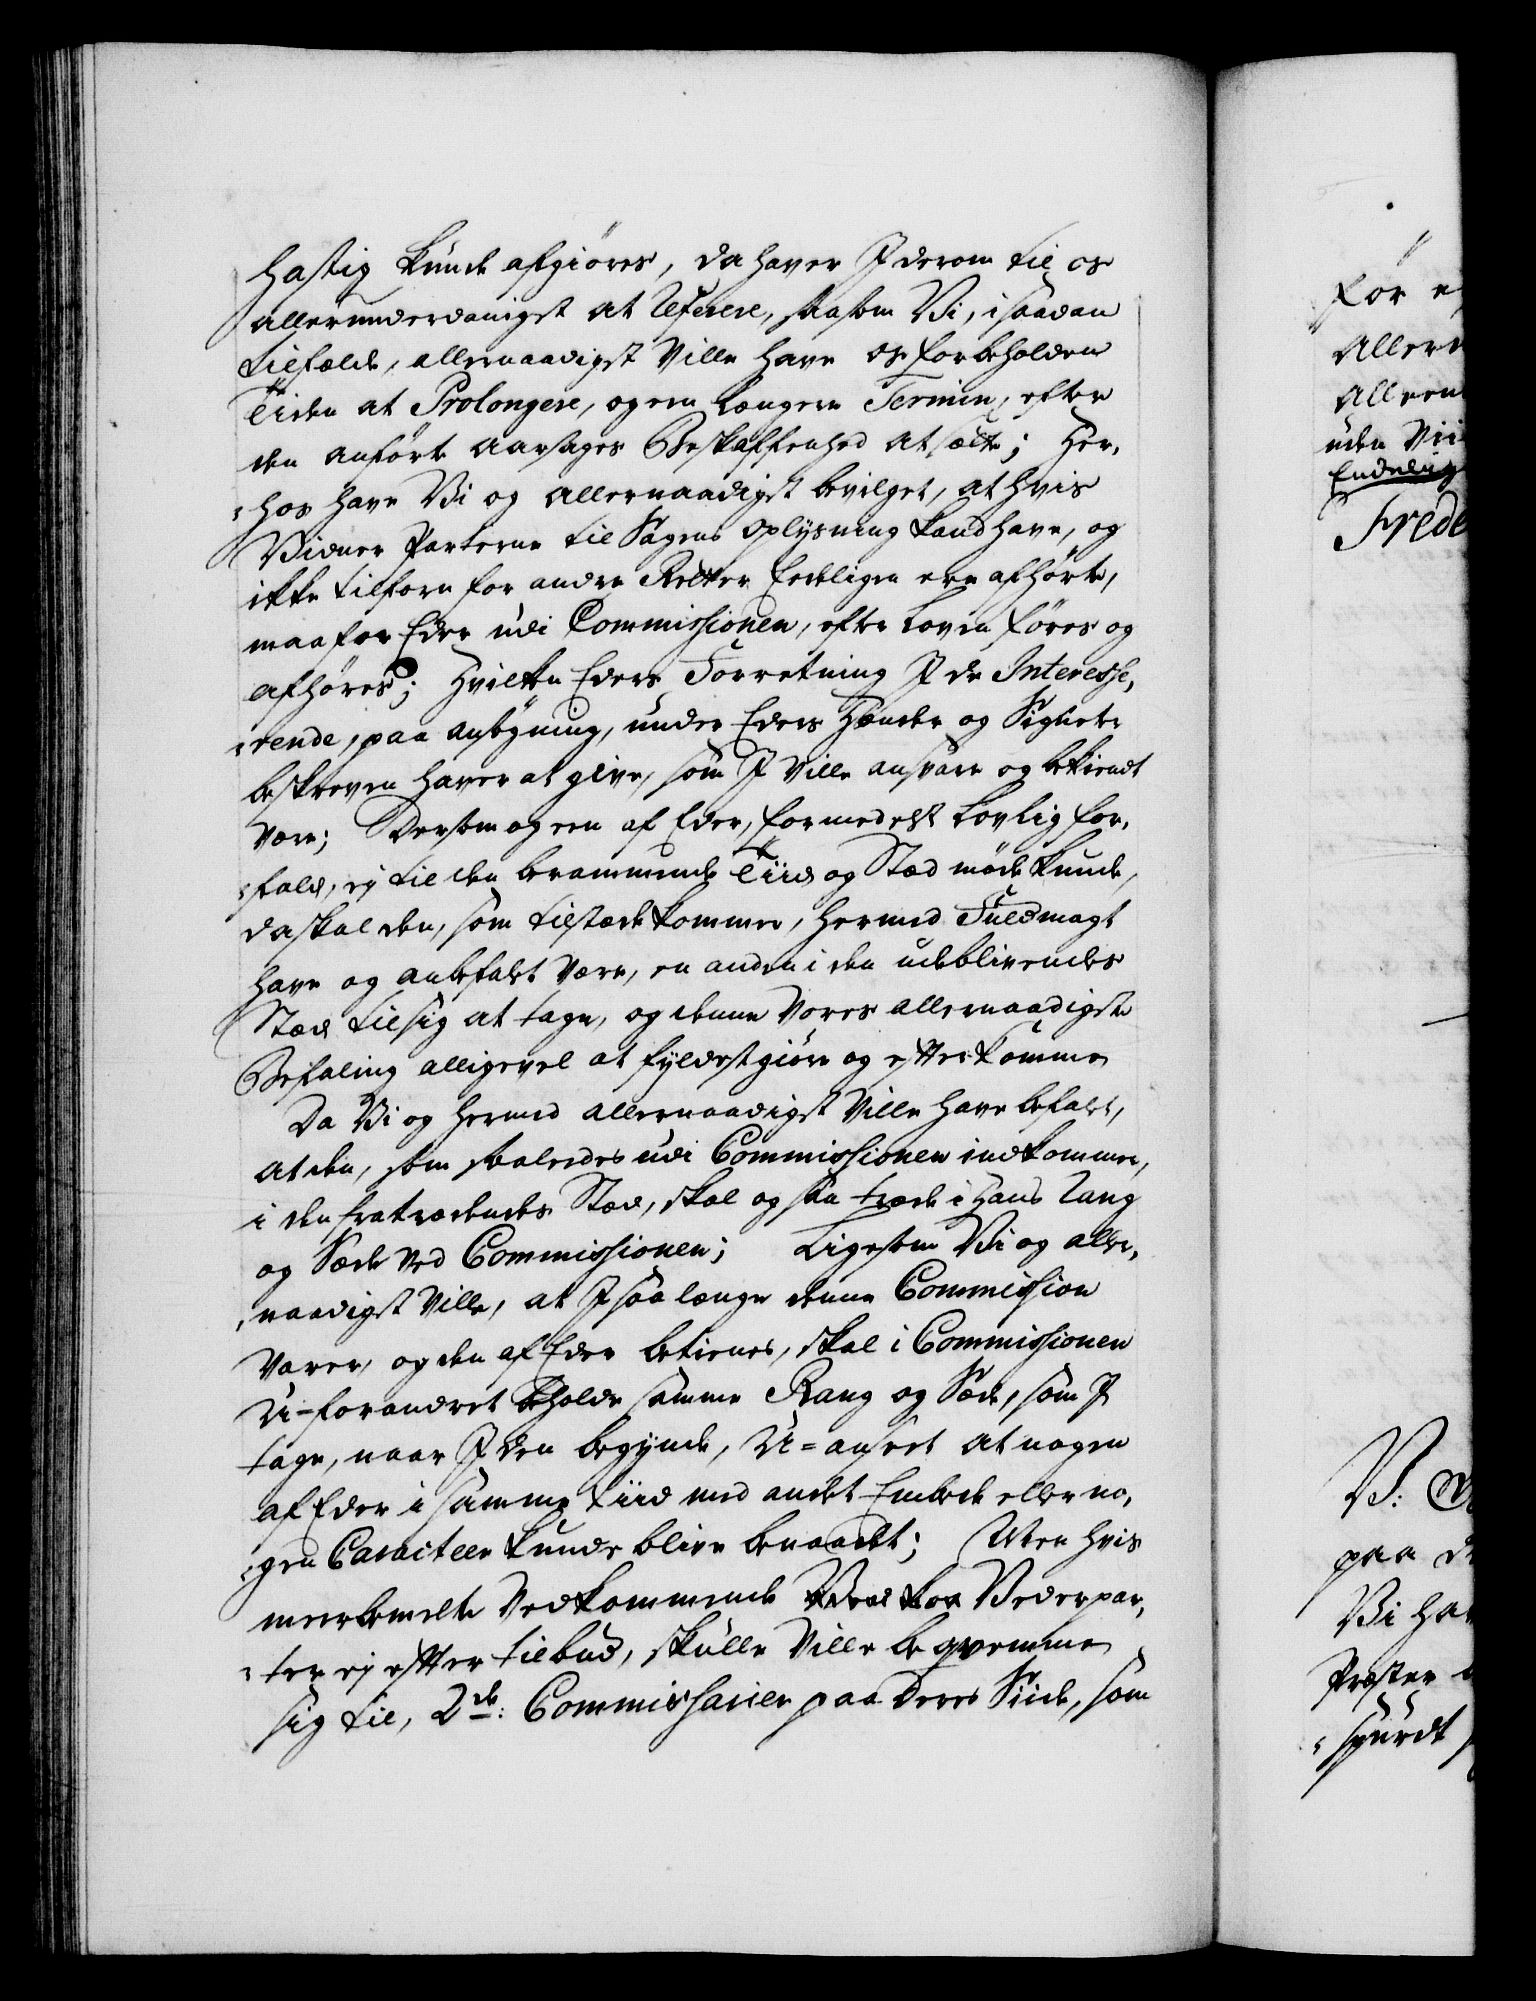 hastig kunde afgiöres, da haver I derom til os
allerunderdanigst at Referere, saasom Vi, i saadan
tilfælde, allernaadigst Ville have os forbeholden
Tiden at Prolongere, og en længere Termin, efter
den anförte aarsages Beskaffenhed at sætte; Her,
hos have Vi og allernaadigst bevilget, at hvis
Vidner Parterne til Sagens oplysning kand have, og
ikke tilforn for andre Retter Eedeligen ere afhörte,
maa for Eder udi Commissionen, efter Loven föres og
afhöres; Hvilken Eders Forretning I de Interesse,
rende, paa ansögning, under Eders Hænder og Signeter
beskreven haver at give, som I Ville ansvare og bekiendt
være; Dersom og een af Eder, formedelst Lovlig for,
fald, ej til den berammende Tiid og Stæd möde kunde,
da skal den, som tilstæde kommer, hermed Fuldmagt
have og anbefalet være, en anden i den udeblivendes
Stæd til sig at tage, og denne Vores allernaadigste
Befaling alligevel at fyldestgiöre og efterkomme
Da Vi og hermed allernaadigst Ville have befalet,
at den, som saaledes udi Commissionen indkommer,
i den fratrædendes Stæd, skal og saa træde i Hans Rang
og Sæde ved Commissionen; Ligesom Vi og aller,
naadigst Ville, at I saa længe denne Commission
Varer, og den af Eder betienes, skal i Commissionen
U-forandret beholde samme Rang og Sæde, som I
tage, naar I den begynde, U=anseet at nogen
af Eder i samme tiid med andet Embede eller no,
gen Caracteer kunde blive benaadet; Men hvis
meerbemelte Vedkommende Vederpar,
ter ej efter tilbud, skulle Ville beqvemme
sig til, 2de: Commissarier paa Deres Siide, som